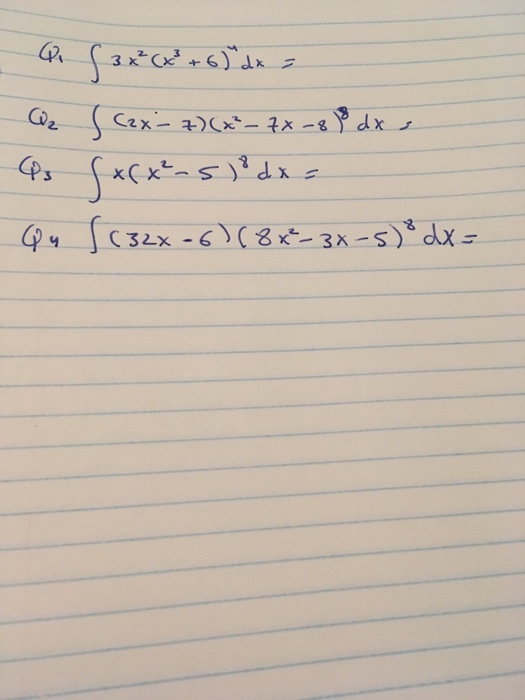 Q1 ∫ 3x²(x³ + 6)⁴ dx =
Q2 ∫ (2x - 7)(x² - 7x - 8)⁸ dx =
Q3 ∫ x(x² - 5)⁸ dx =
Q4 ∫ (32x - 6)(8x² - 3x - 5)⁸ dx =